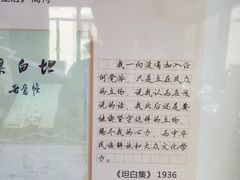 我一向没有加入任
何党派，只是立在民众
的立场，说我认为应该
说的话，我此后还是要
继续坚守这样的立场，
竭尽我的心力，为中华
民族解放和大众文化努
力。
《坦白集》1936
集白坦